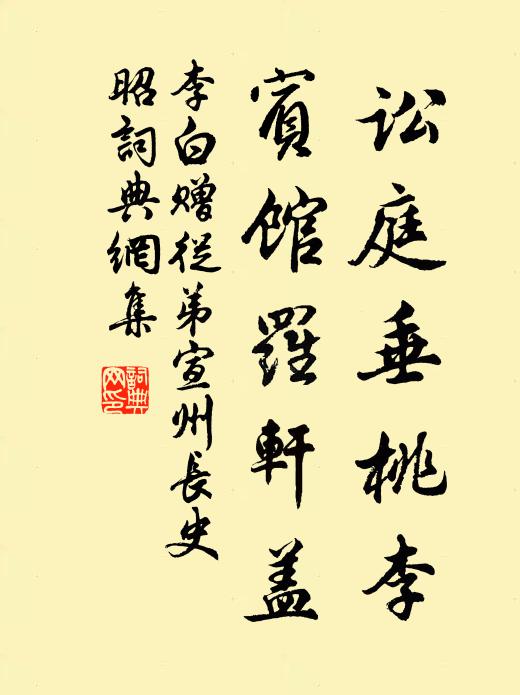 訟庭垂桃李
賓館羅軒盖
李白赠從弟宣州長史
昭詞典網集
詞典
网印